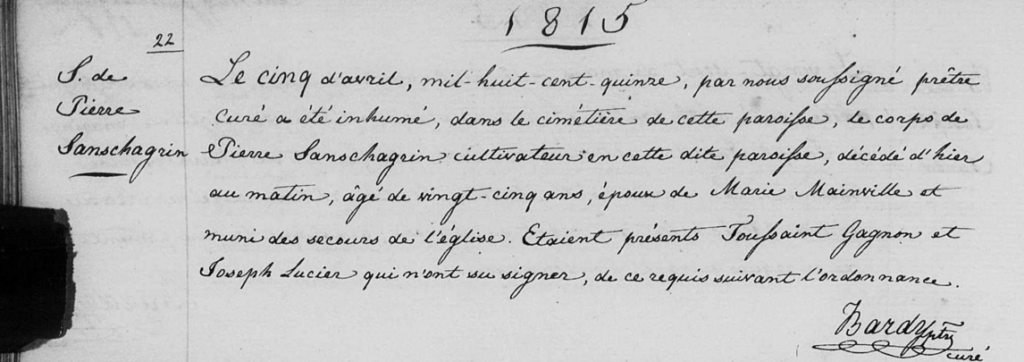 1815
22
S. de
Pierre
Sanschagrin
Le cinq d'avril, mil-huit-cent-quinze, par nous soussigné prêtre
curé a été inhumé, dans le cimétière de cette paroisse, le corps de
Pierre Sanschagrin cultivateur en cette dite paroisse, décédé d'hier
au matin, âgé de vingt-cinq ans, époux de Marie Mainville et
muni des secours de l'église. Etaient présents Toussaint Gagnon et
Joseph Lucier qui n'ont su signer, de ce requis suivant l'ordonnance.
Bardy ptre
curé